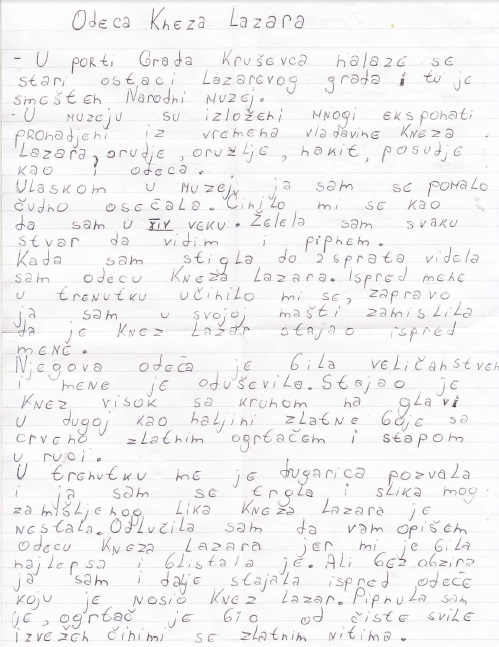 Odeca Kneza Lazara
- U porti Grada Kruševca nalaze se
stari ostaci Lazarevog grada i tu je
smešten Narodni muzej.
- U muzeju su izloženi mnogi eksponati
pronadjeni iz vremena vladavine Kneza
Lazara, orudje, oružlje, nakit, posudje
kao i odeca.
Ulaskom u muzej, ja sam se pomalo
čudno osećala. Činilo mi se kao
da sam u XIV veku. Želela sam svaku
stvar da vidim i pipnem.
Kada sam stigla do 2 sprata videla
sam odecu Kneza Lazara. Ispred mene
u trenutku učinilo mi se, zapravo
ja sam u svojoj mašti zamislila
da je Knez Lazar stajao ispred
mene.
Njegova odeća je bila veličanstven
i mene je oduševila. Stajao je
Knez visok sa krunom na glavi
u dugoj kao haljini zlatne boje sa
crveno zlatnim ogrtačem i stapom
u ruci.
U trenutku me je drugarica pozvala
i ja sam se trgla i slika mog
zamišljenog lika Kneza Lazara je
nestala. Odlučila sam da vam opišem
odecu Kneza Lazara jer mi je bila
najlepsa i blistala je. Ali bez obzira
ja sam i dalje stajala ispred odeće
koju je nosio Knez Lazar. Pipnula sam
je, ogrtač je bio od čiste svile
izvežen činimi se zlatnim nitima.